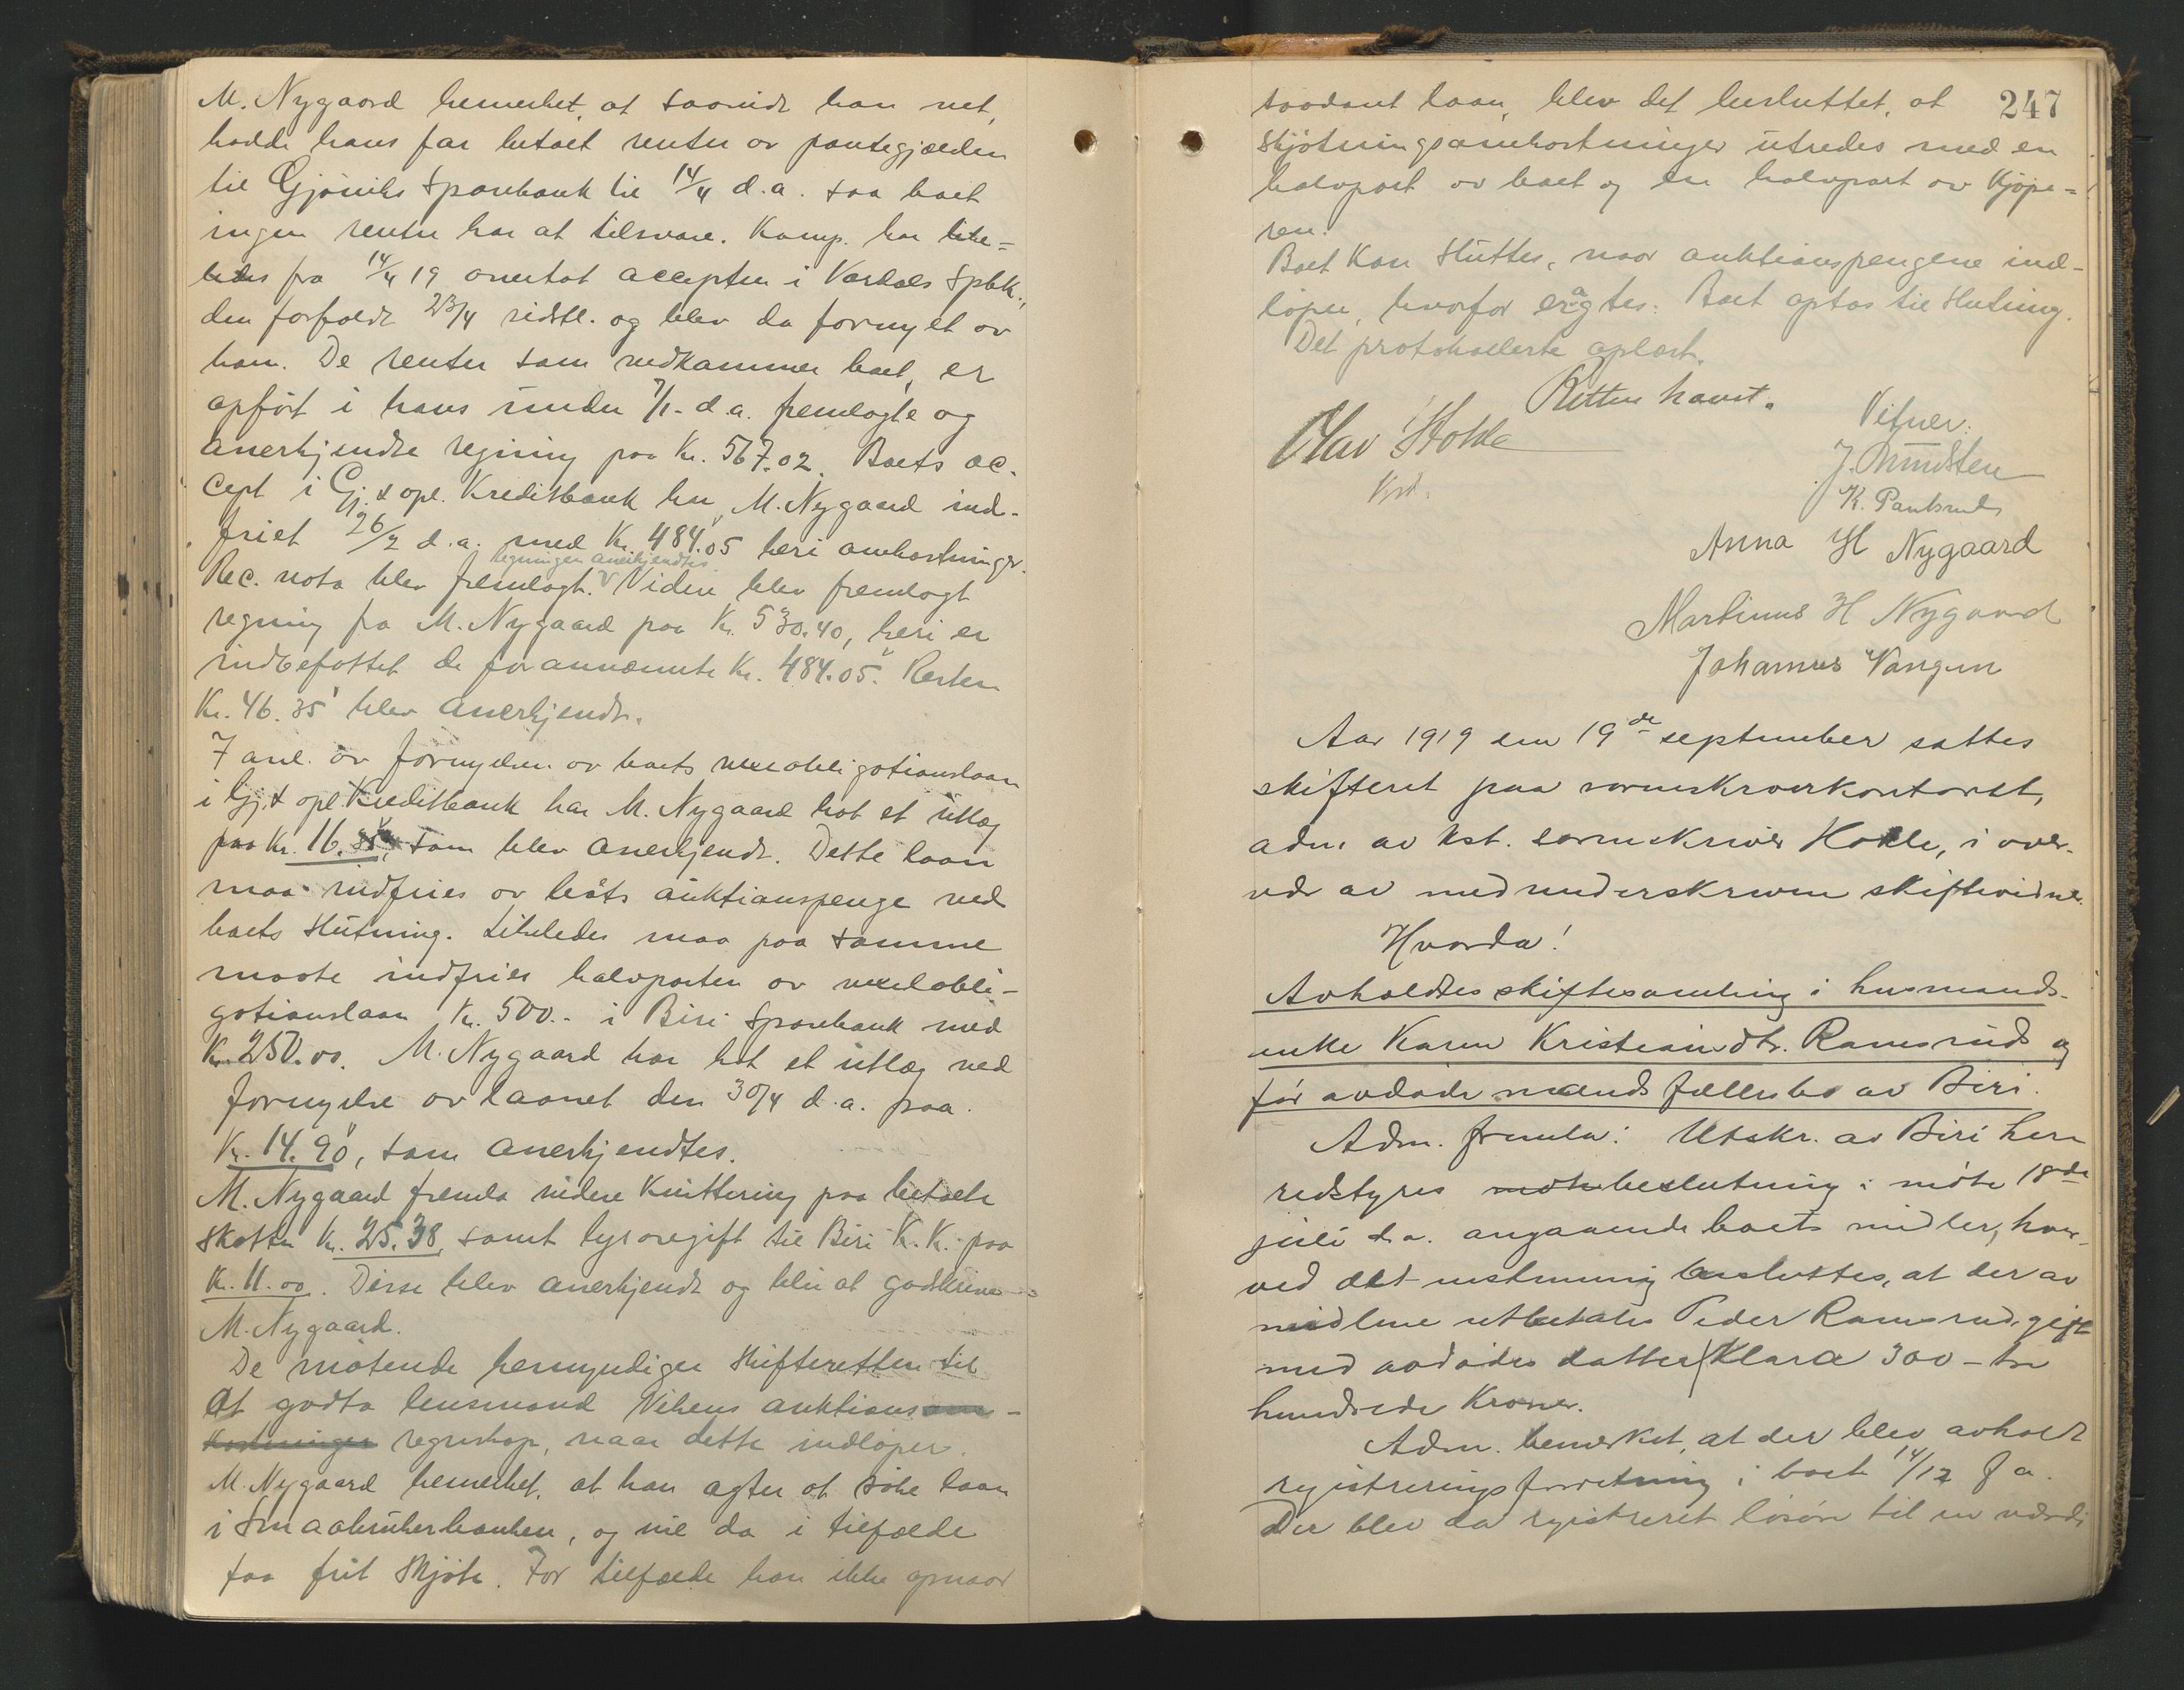 M. Nygaard bemerket, at saavidt han vet,
hadde hans far betalt renter av pantegjælden
til Gjøviks Sparebank til 14/4 d.a. saa boet
ingen renter har at tilsvare. Komp. har like-
ledes fra 14/4 19 overtat accepten i Vardals Spbk.,
den forfaldt 23/4 sidstl. og blev da fornyet av
ham. De renter som vedkommer boet, er
opført i hans under 7/1- d.a. fremlagte og
anerkjendte regning paa Kr. 567.02. Boets ac-
cept i Gj. & opl. Kreditbank har M. Nygaard ind-
friet 26/2 d.a. med Kr. 484.05 heri omkostninger.
Regningen anerkjendtes
Rec. nota blev fremlagt. V Videre blev fremlagt
regning fra M. Nygaard paa Kr. 530.40, heri er
indbefattet de forannævnte Kr. 484.05. Resten
Kr. 46.35 blev anerkjendt.
I anl. av fornyelsen av boets vexelobligationslaan
i Gj. & opl. Kreditbank har M. Nygaard hat et utlæg
paa Kr. 16. som blev anerkjendt. Dette laan
maa indfries av boets auktionspenge ved
boets slutning. Likeledes maa paa samme
maate indfries halvparten av vexelobli-
gationslaan Kr. 500.- i Biri Sparebank med
Kr. 250.00. M. Nygaard har hat et utlæg ved
fornyelse av laanet den 30/4 d.a. paa
Kr. 14.90, som anerkjendtes.
M. Nygaard fremla videre kvittering paa betalte
skatter Kr. 25.38, samt lysavgift til Biri K. K. paa
Kr. 11.00. Disse blev anerkjendt og blir at godskrive
M. Nygaard.
De møtende bemyndiger skifteretten til
at godta lensmand Vikens auktionsom-
kostninger regnskap, naar dette indløper.
M. Nygaard bemerket, at han agter at søke laan
i Smaabrukerbanken, og vil da i tilfælde
faa frit skjøte. For tilfælde han ikke opnaar
247
saadant laan, blev det besluttet, at
skjøtningsomkostninger utredes med en
halvpart av boet og en halvpart av kjøpe-
ren.
Boet kan sluttes, naar auktionspengene ind-
løper, hvorfor eragtes: Boet optas til slutning.
Det protokollerte oplæst.
Retten hævet.
Olav Hokle
kst.
Vitner:
J. Knudsten
K. Pauls
Anna H Nygaard
Martinus H Nygaard
Johannes Vangen
Aar 1919 den 19de september sattes
skifteret paa sorenskriverkontoret,
adm. av kst. sorenskriver Hokle, i over-
vær av medunderskrevne skiftevidner.
Hvorda!
Avholdtes skiftesamling i husmands-
enke Karen Kristiansdtr. Ramsruds og
før avdøde mands fællesbo av Biri.
Adm. fremla: Utskr. av Biri her-
redstyres møtebeslutning i møte 18de
juli d.a. angaaende boets midler, hvor-
ved det enstemmig besluttes, at der av
midlene utbetales Peder Ramsrud, gift
med avdødes datter Klara 300 – tre
hundrede Kroner.
Adm. bemerket, at der blev avholdt
registreringsforretning i boet 14/12 f a.
Der blev da registreret løsøre til en værdi